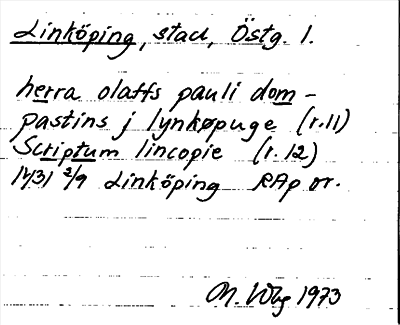 Linköping, stad, Östg. l.
herra olaffs pauli dom-
pastins j lynkøpuge (r.11)
Scriptum lincopie (r.12)
1431 2/9 Linköping RAp or.
M. Wbg 1973